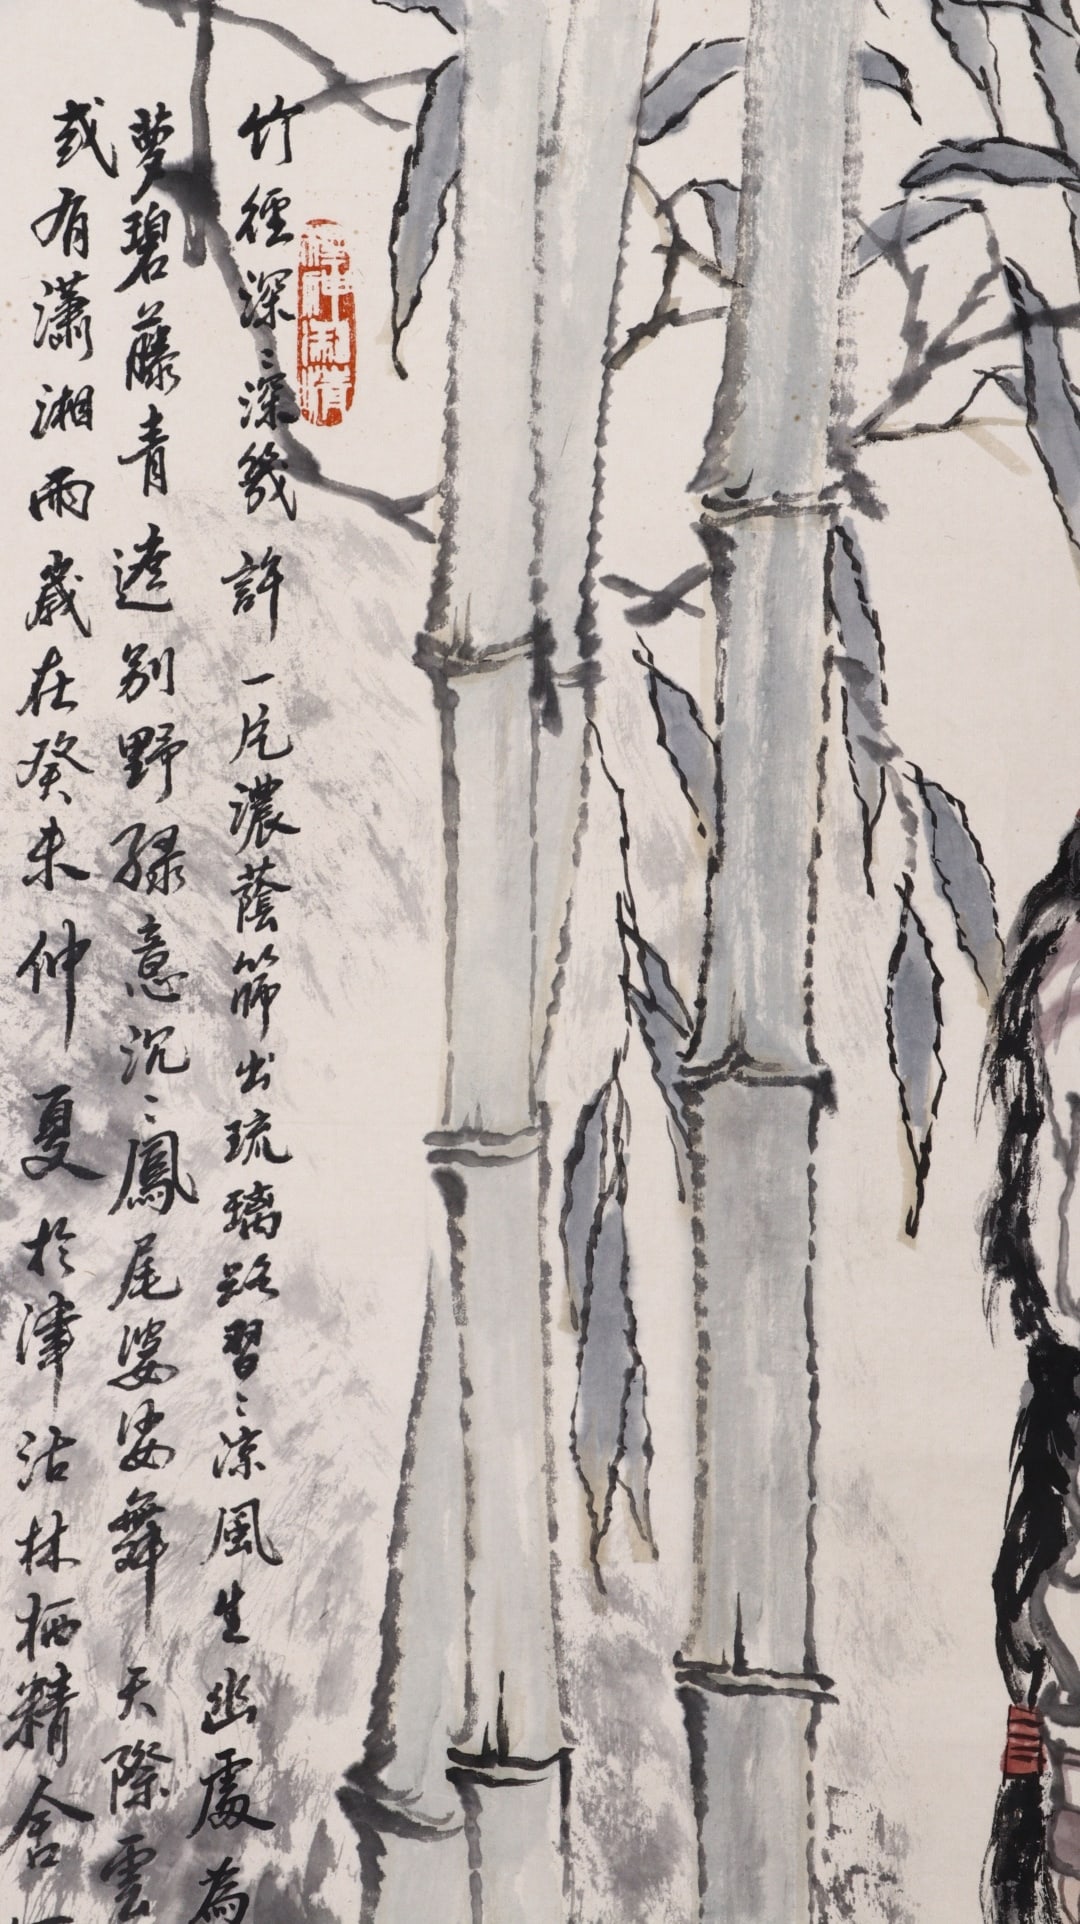 竹徑深〻深幾許一片濃蔭篩出琉璃路習〻涼風生幽處為
夢碧藤青遮別野綠意沉〻鳳尾婆娑舞天際雲
或有瀟湘雨歲在癸未仲夏於津沽林栖精舍